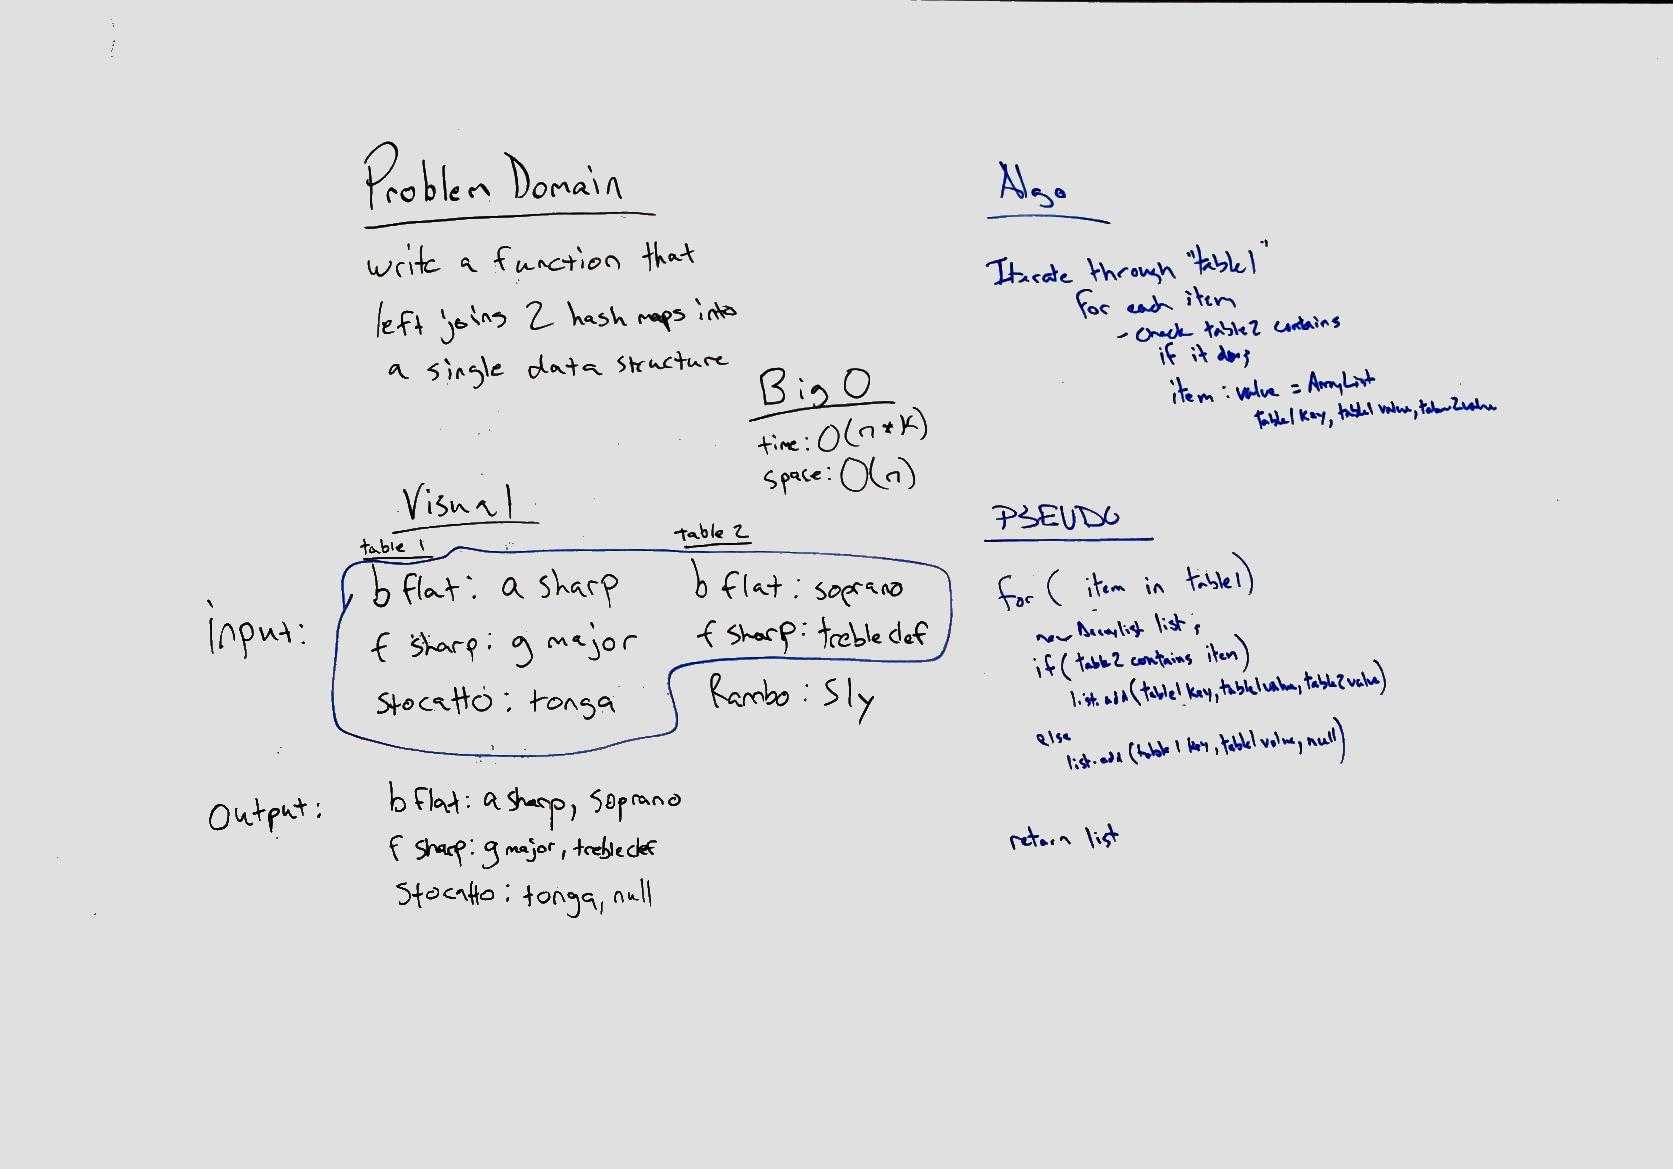 Problem Domain
write a function that
left joins 2 hash maps into
a single data structure
Big O
time: O(n*K)
space: O(n)
Visual
table 1
table 2
input:
b flat: a sharp
b flat: soprano
f sharp: g major
f sharp: treble clef
Stocatto: tonga
Rambo: Sly
Output:
b flat: a sharp, soprano
f sharp: g major, treble clef
Stocatto: tonga, null
Algo
Iterate through "table1"
for each item
- check table2 contains
if it does
item: value = ArrayList
table1 key, table1 value, table2value
PSEUDO
for( item in table1)
new Arraylist list;
if(table2 contains item)
list.add(table1 key, table1value, table2value)
else
list.add(table1 key, table1value, null)
return list